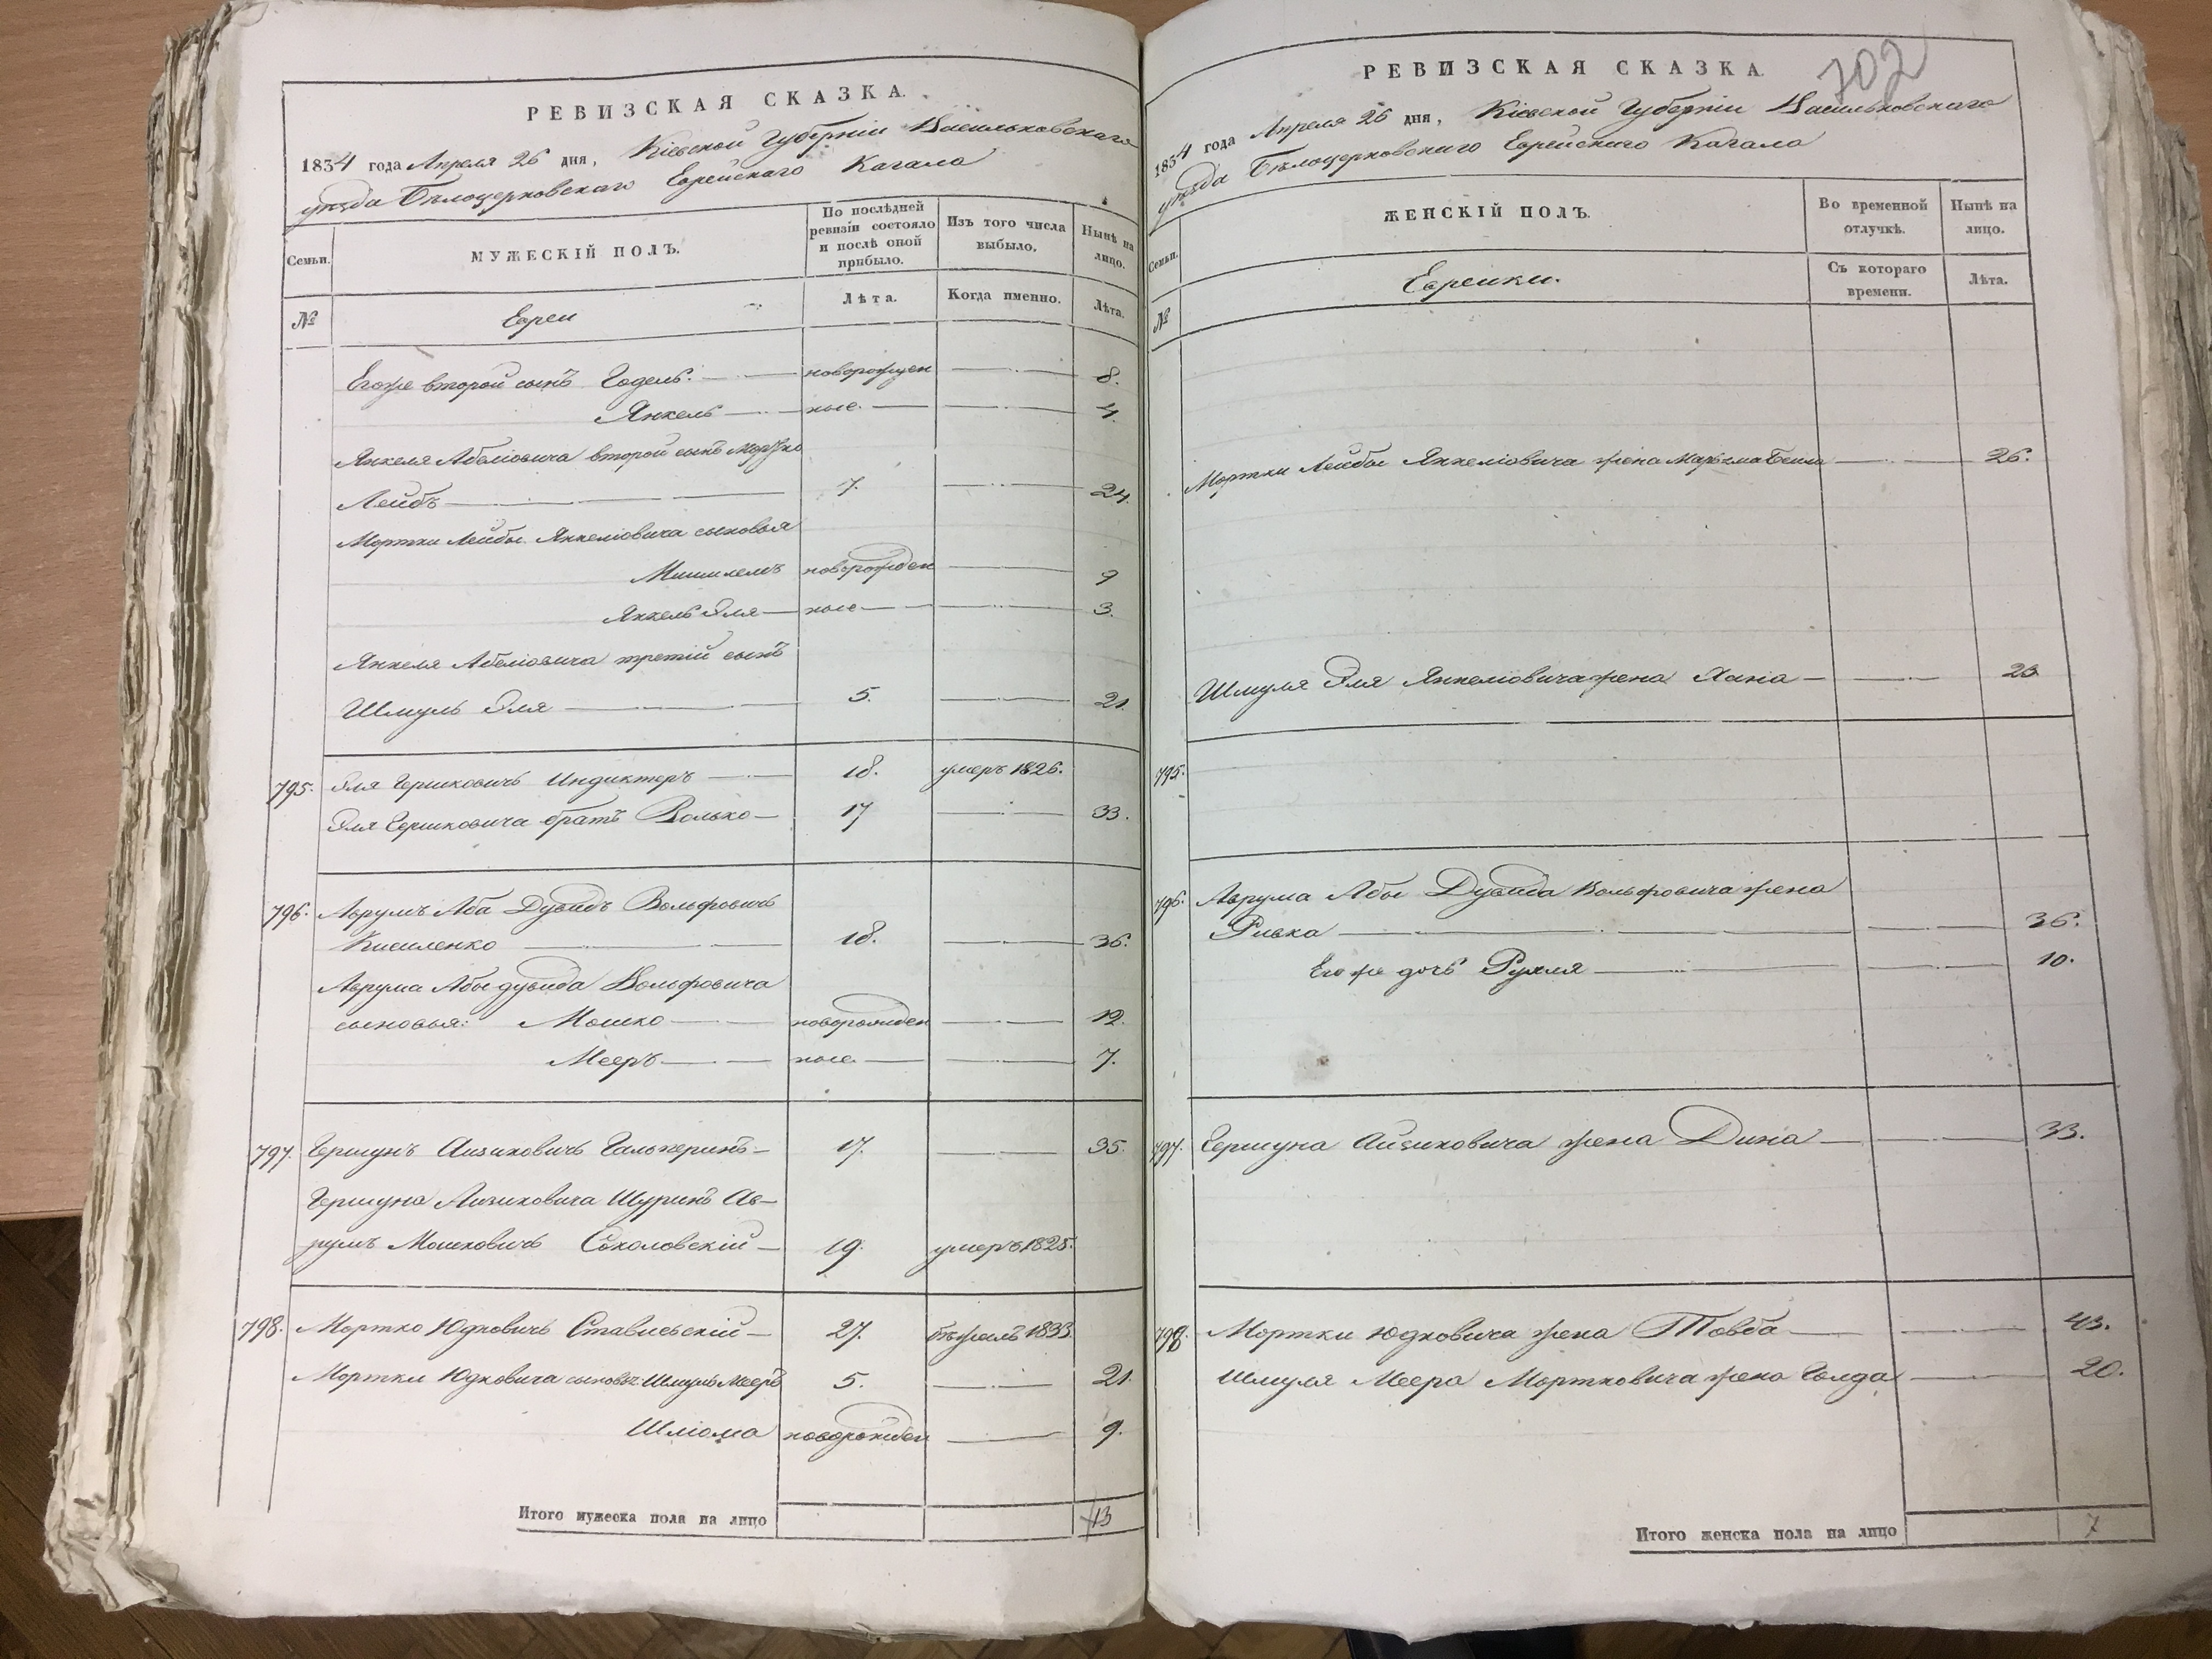 РЕВИЗСКАЯ СКАЗКА.
1834 года Апреля 26 дня, Кіевской Губерніи Васильковскаго
уѣзда Бѣлоцерковскаго Еврейскаго Кагала
Семьи.
МУЖЕСКІЙ ПОЛЪ.
По послѣдней ревизіи состояло и послѣ оной прибыло.
Изъ того числа выбыло.
Нынѣ на лицо.
№
Евреи
Лѣта.
Когда именно.
Лѣта.
Егоже второй сынъ Годель. новорожден 8.
Янкель ные. 4.
Янкеля Абеліовича второй сынъ Мортко
Лейбъ 7. 24.
Мортки Лейбы Янкеліовича сыновья
новорожден 9
Янкель Эля ные 3.
Янкеля Абеліовича третій сынъ
Шмуль Эля 5. 21.
795. Эля Гершковичъ Индиктеръ 18. умеръ 1826.
Эля Гершковича братъ Волько 17 33.
796. Аврумъ Аба Дувидъ Вольфовичъ
Кисиленко 18. 36.
Аврума Абы дувида Вольфовича
сыновья: Мошко новорожден 12.
Мееръ ные 7.
797. Гершунъ Айзиковичъ Гальперинъ 17. 35.
Гершуна Айзиковича Шуринъ Ав-
румъ Мошковичъ Соколовскій 19. умеръ 1825.
798. Мортко Юдковичъ Ставискій 27. бѣжалъ 1833
Мортки Юдковича сыновья Шмуль Мееръ 5. 21.
Шліома новорожден 9.
Итого мужеска пола на лицо 13
702
РЕВИЗСКАЯ СКАЗКА.
1834 года Апреля 26 дня, Кіевской Губерніи Васильковскаго
уѣзда Бѣлоцерковскаго Еврейскаго Кагала
Семьи.
ЖЕНСКІЙ ПОЛЪ.
Во временной отлучкѣ.
Нынѣ на лицо.
№
Еврейки.
Съ котораго времени.
Лѣта.
Мортки Лейбы Янкеліовича жена 26.
Шмуля Эля Янкеліовича жена Хана
795.
796. Аврума Абы Дувида Вольфовича жена
Ривка 36.
Его же дочь Рухля 10.
797. Гершуна Айзиковича жена Дина 33.
798. Мортки Юдковича жена Товба 43.
Шмуля Меера Мортковича жена Голда 20.
Итого женска пола на лицо 7